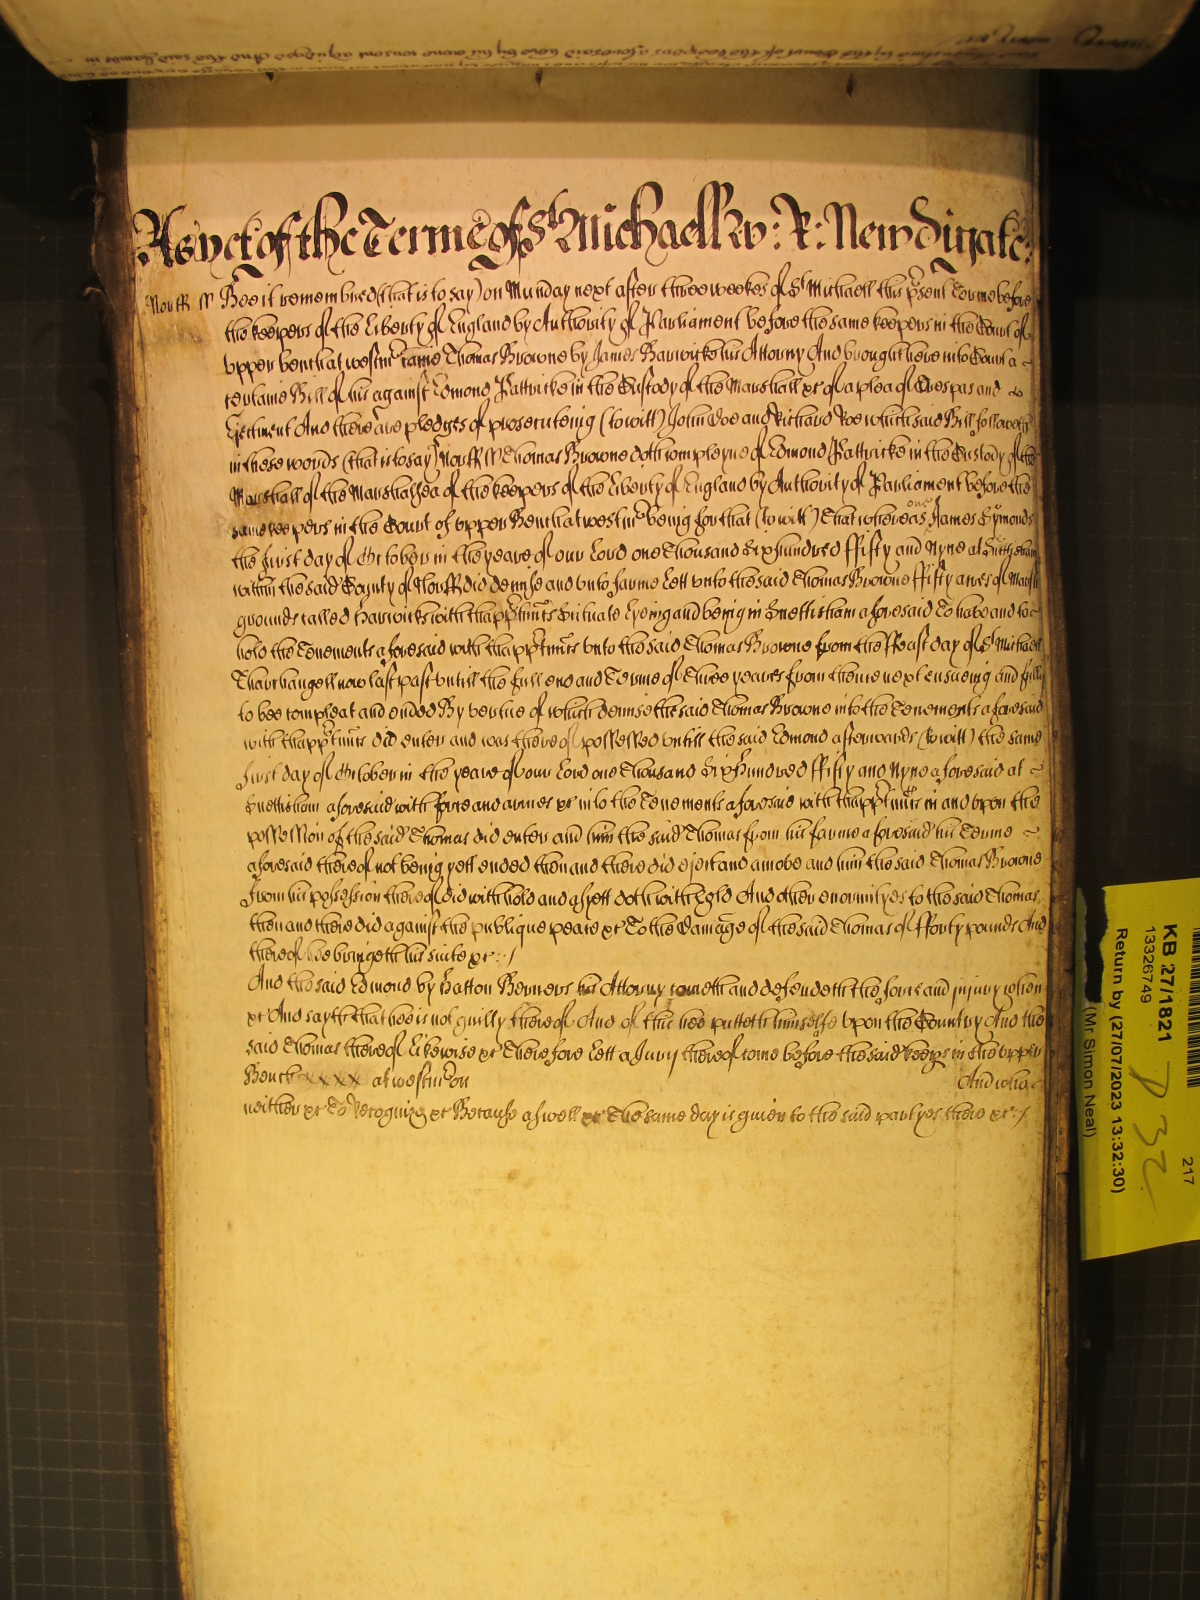 As yet of the Terme of St Michaell W: R: Newdigate:
Norff ss Bee it remembred (that is to say) on Munday next after three weekes of St Michaell this p̄sent Terme before
the keepers of the Liberty of England by Authority of Parliament before the same keepers in the Court of
Upper bench at westmr came Thomas Browne by James Barwicke his Attorny And brought here into Court a
certaine Bill of his against Edmond Pattricke in the Custody of the Marshall xc of a plea of Trespas and
Ejectment And there are pledges of prosecuteing (to witt) John Doe and Richard Roe which said Bill followeth
in these words (that is to say) Norff ss Thomas Browne doth compleyne of Edmond Pattricke in the Custody of the
Marshall of the Marshallsea of the keepers of the Liberty of England by Authority of Parliament before the
same keepers in the Court of Upper Bench at westmr being for that (to witt) That whereas one James Symonds
the first day of October in the yeare of our Lord one Thousand Six hundred ffifty and Nyne at Snettisham
within the said County of Norff did demise and unto farme lett unto the said Thomas Browne ffifty acres of Marsh
grounds called Barwicks with thapp̄tnñcs Scituate Lyeing and being in Snettisham aforesaid To have and to
hold the Tenements aforesaid with thapp̄tnñcs unto the said Thomas Browne from the ffeast day of St Michaell
Tharchangell now last past untill the full end and Terme of Three yeares from thence next ensueing and fully
to bee compleat and ended By vertue of which demise the said Thomas Browne into the Tenements aforesaid
with thapp̄tnñcs did enter and was thereof possessed untill the said Edmond afterwards (to witt) the same
first day of October in the yeare of our Lord one Thousand Six hundred ffifty and Nyne aforesaid at
Snettisham aforesaid with force and armes xc into the Tenements aforesaid with thapp̄tnñcs in and upon the
possession of the said Thomas did enter and him the said Thomas from his farme aforesaid his Terme
aforesaid thereof not being yett ended then and there did eject and amove and him the said Thomas Browne
from his possession thereof did withhold and as yett doth withhold And other enormityes to the said Thomas
then and there did against the publique peace xc To the Damage of the said Thomas of fforty pounds And
thereof hee bringeth his suite xc:/
And the said Edmond by Hatton Berners his Attorny cometh and defendeth the force and injury when
xc And sayth that hee is not guilty thereof And of this hee putteth himselfe upon the Country And the
said Thomas thereof likewise xc Therefore Lett a Jury thereof come before the said keeps in the Upper
Bench xxxx at westmr on And who
neither xc To recognize xc Because aswell xc The same day is given to the said partyes there xc:/
KB 27/1821
13326749
Return by (27/07/2023 13:32:30)
(Mr Simon Neal)
217
P 32